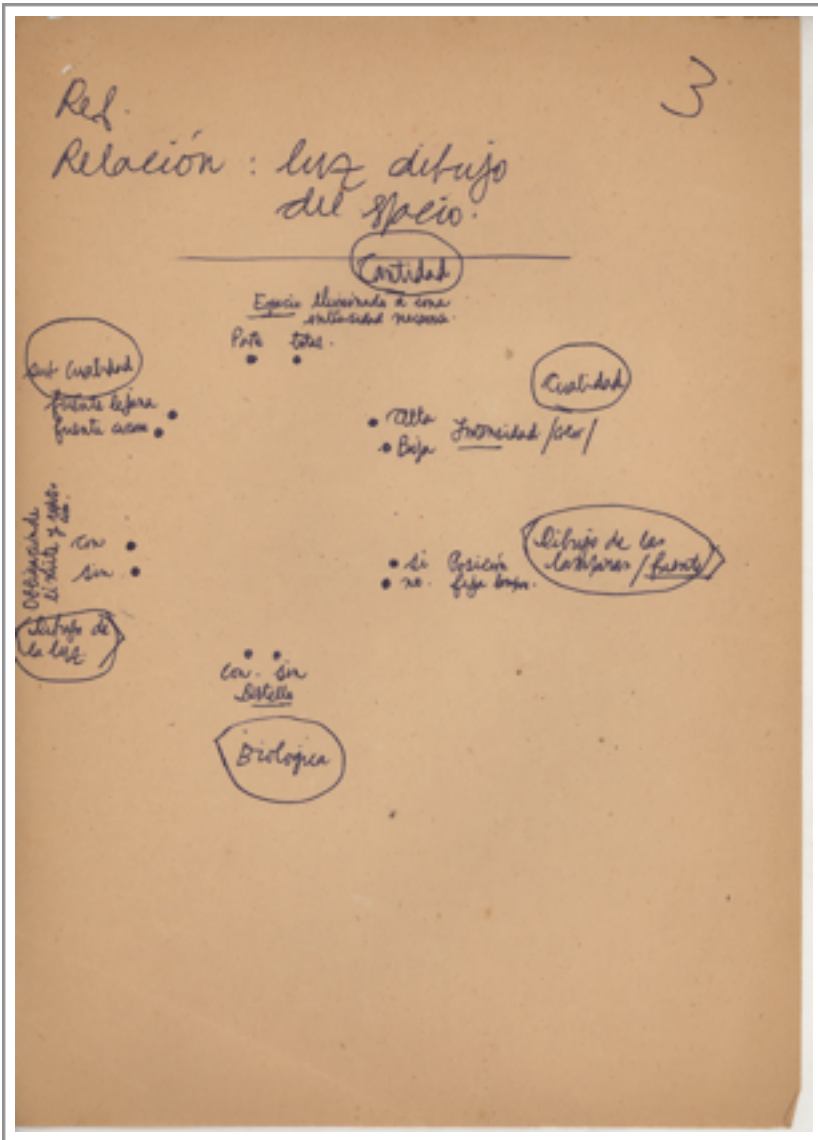 3
Red.
Relación : luz dibujo
del espacio.
Cantidad
Espacio iluminado a una
intensidad necesaria.
Parte total.
sub Cualidad
fuente lejana
fuente cerca
Cualidad
Alta
Baja Intensidad /
con
sin
límite y
Dibujo de
la luz
Dibujo de las
lámparas / fuente
si Posición
no. fija
con - sin
Destello
Biologica